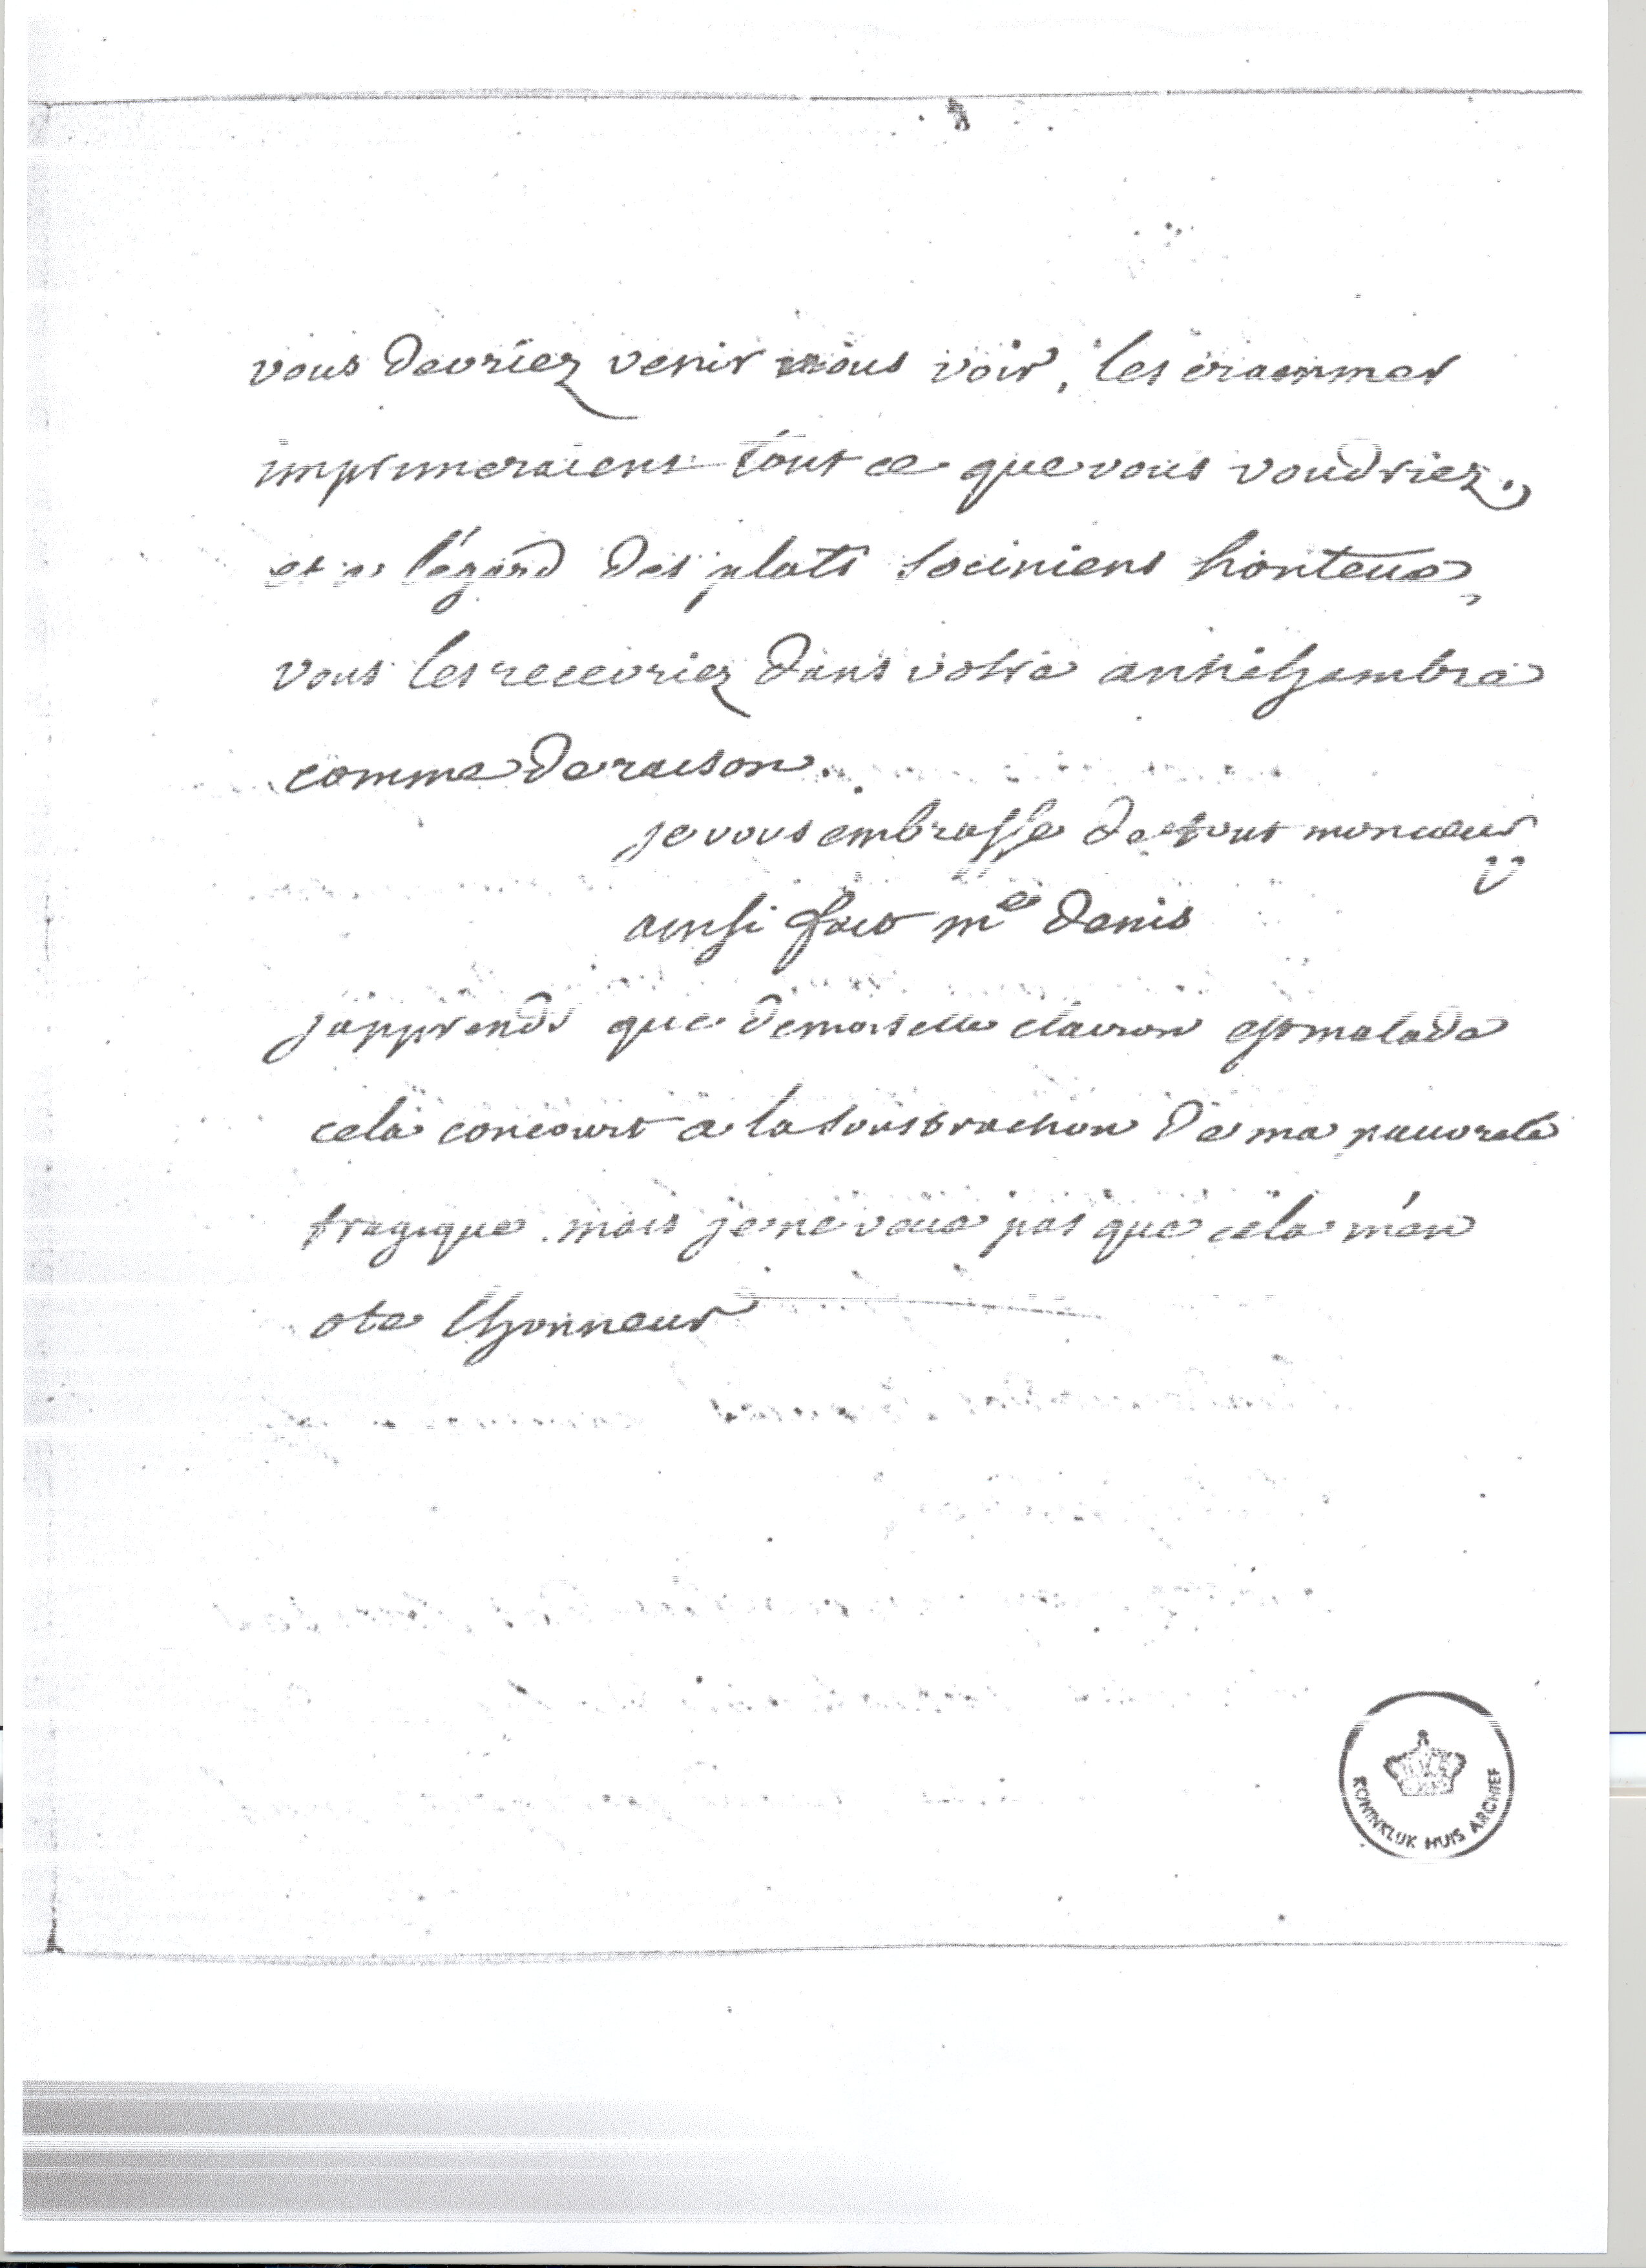 vous devriez venir nous voir, les crammer
imprimeraient tout ce que vous voudriez.,
et a légard des plats sociniens honteux,
vous les recevriez dans votre antichambre
comme de raison.
je vous embrasse de tout mon cœur
V
ainsi fait me denis
japprends que demoiselle clairon est malade
cela concourt a la soustraction de ma pauvreté
tragique. mais je ne veux pas que cela m'en
ote lhonneur
KONINKLIJK HUIS ARCHIEF